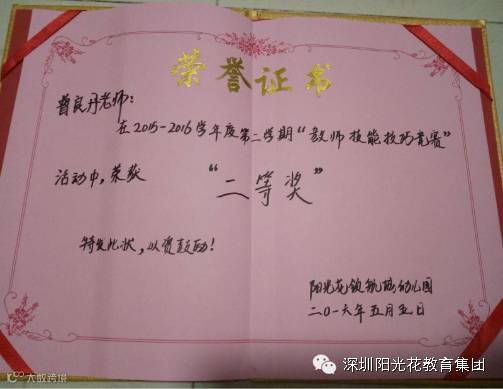 荣誉证书
曾良丹老师:
在2015-2016学年度第二学期“教师技能技巧竞赛”
活动中,荣获 “二等奖”
特发此状,以资鼓励!
阳光花 幼儿园
二〇一六年五月五日
大数跨境
深圳阳光花教育集团